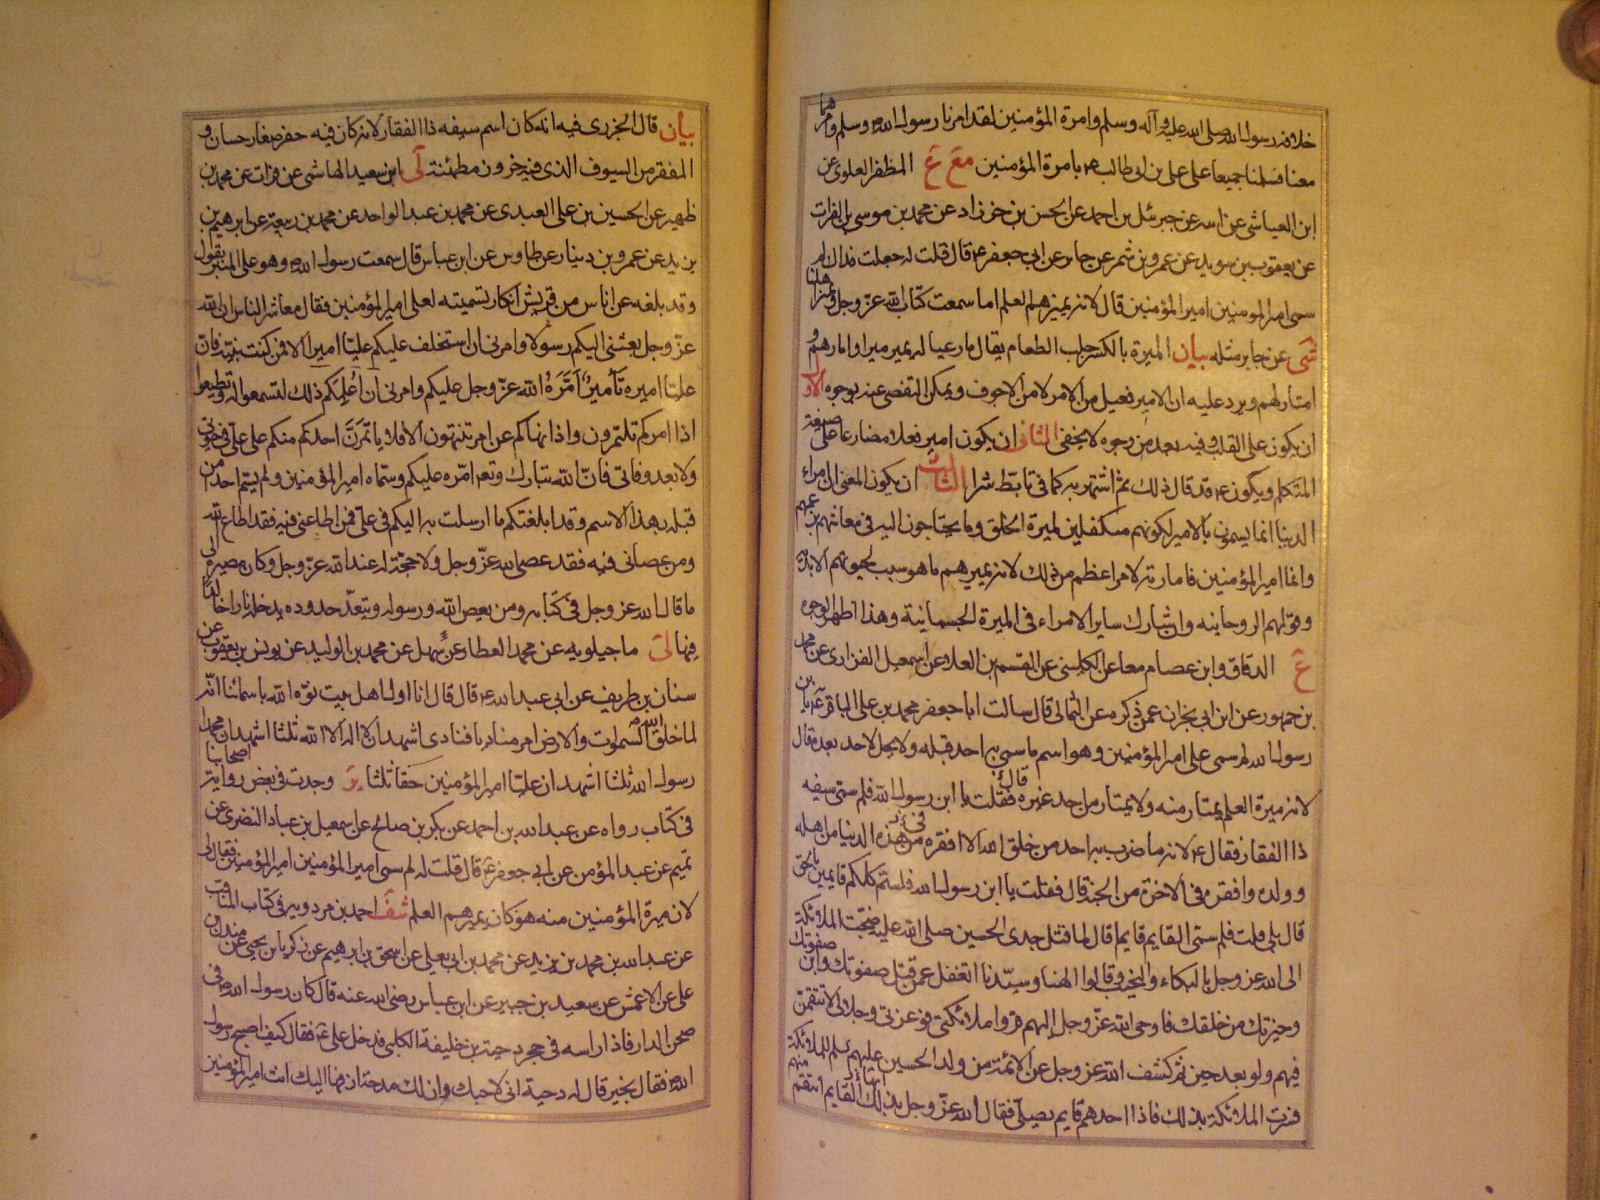 خلافه رسول الله صلى الله عليه وآله وسلم وامرة المؤمنين لقد امرنا رسول الله ص وسلم وامرهما
معنا فسلمنا جميعا على علي بن ابي طالب ع بامرة المؤمنين مع ع المظفر العلوي عن
ابن العياشي عن ابيه عن جبرئل بن احمد عن الحسن بن خرزاد عن محمد بن موسى بن الفرات
عن يعقوب بن سويد عن عمرو بن شمر عن جابر عن ابي جعفر ع قال قلت له جعلت فداك لم
سمى امير المومنين امير المؤمنين قال لانه يميرهم العلم اما سمعت كتاب الله عز وجل ونمير اهلنا
شى عن جابر مثله بيان الميرة بالكسر جلب الطعام يقال مار عياله يمير ميرا وامارهم و
امتار لهم ويرد عليه ان الامير فعيل من الامر لا من الاجوف ويمكن التفصى عنه بوجوه الاول
ان يكون على القلب وفيه بعد من وجوه لا يخفى الثانى ان يكون امير فعلا مضارعا على صيغة
المتكلم ويكون ع قد قال ذلك ثم اشتهر به كما في تابط شرا الثالث ان يكون المعنى ان امراء
الدنيا انما يسمون بالامير لكونهم متكفلين لميرة الخلق وما يحتاجون اليه في معاشهم بزعمهم
واما امير المؤمنين فامارته لامر اعظم من ذلك لانه يميرهم ما هو سبب لحيوتهم الابدية
وقوتهم الروحانية وان شارك ساير الامراء في الميرة الجسمانية وهذا اظهر الوجوه
ع الدقاق وابن عصام معا عن الكليني عن القسم بن العلاء عن اسمعيل الفزارى عن محمد
بن جمهور عن ابن ابي نجران عمن ذكره عن الثمالى قال سالت ابا جعفر محمد بن علي الباقر ع يا بن
رسول الله لم سمى على امير المؤمنين وهو اسم ما سمى به احد قبله ولا يحل لاحد بعده قال
لانه ميرة العلم يمتار منه ولا يمتار من احد غيره قال فقلت يا ابن رسول الله فلم سمى سيفه
ذا الفقار فقال ع لانه ما ضرب به احد من خلق الله الا افقره من هذه الدنيا من اهله
وولده وافقره في الاخرة من الجنة قال فقلت يا ابن رسول الله فلستم كلكم قايمين بالحق
قال بلى قلت فلم سمى القايم قايما قال لما قتل جدى الحسين صلى الله عليه ضجت الملائكة
الى الله عز وجل بالبكاء والنحيب وقالوا الهنا وسيدنا اتغفل عمن قتل صفوتك وابن صفوتك
وخيرتك من خلقك فاوحى الله عز وجل إليهم قروا ملائكتي فوعزتي وجلالى لانتقمن
منهم ولو بعد حين ثم كشف الله عز وجل عن الائمة من ولد الحسين عليهم السلم للملائكة
فسرت الملائكة بذلك فاذا احدهم قايم يصلى فقال الله عز وجل بذلك القايم انتقم منهم
بيان قال الجزرى فيه انه كان اسم سيفه ذا الفقار لانه كان فيه حفر صغار حسان و
المفقر من السيوف الذى فيه خزون مطمئنة لى ابن سعيد الهاشمي عن فرات عن محمد بن
ظهير عن الحسين بن علي العبدى عن محمد بن عبد الواحد عن محمد بن ربيعة عن ابرهيم بن
يزيد عن عمرو بن دينار عن طاوس عن ابن عباس قال سمعت رسول الله ص وهو على المنبر يقول
وقد بلغه عن اناس من قريش انكار تسميته لعلى امير المؤمنين فقال معاشر الناس ان الله
عز وجل بعثنى اليكم رسولا وامرنى ان استخلف عليكم عليّا اميرا الا فمن كنت نبيه فان
عليّا اميره تأميرٌ أمّرَهُ الله عزّ وجل عليكم وامرنى ان أعلِمكم ذلك لتسمعوا له وتطيعوا
اذا امركم تاتمرون واذا نهاكم عن امر تنتهون الا فلا ياتمرنّ احد منكم على علي في حيوتي
ولا بعد وفاتى فانّ الله تبارك وتع امّره عليكم وسمّاه امير المؤمنين ولم يسم احدا من
قبله بهذا الاسم وقد ابلغتكم ما ارسلت به إليكم في علي فمن اطاعنى فيه فقد اطاع الله
ومن عصانى فيه فقد عصى الله عزّ وجل ولا حجّة له عند الله عزّ وجل وكان مصيره الى
ما قال الله عز وجل في كتابه ومن يعص الله ورسوله ويتعدّ حدوده يدخله نارا خالدًا
فيها لى ماجيلويه عن محمد العطار عن سهل عن محمد بن الوليد عن يونس بن يعقوب عن
سنان بن طريف عن ابي عبد الله ع قال قال انا اول اهل بيت نوّه الله باسمائنا انّه
لما خلق الله السموات والارض امر مناديا فنادى اشهد ان لا اله الا الله ثلثا اشهد ان محمدا
رسول الله ثلثا اشهد ان عليّا امير المؤمنين حقا ثلثا يو وجدت في بعض رواية اصحابنا
في كتاب رواه عن عبد الله بن احمد عن بكر بن صالح عن اسمعيل بن عباد النضرى عن
تميم عن عبد المؤمن عن ابي جعفر ع قال قلت له لم سمى امير المؤمنين امير المؤمنين فقال لى
لان ميرة المؤمنين منه هو كان يميرهم العلم شف احمد بن مردويه في كتاب المناقب
عن عبد الله بن محمد بن يزيد عن محمد بن ابي يعلى عن اسحق بن ابرهيم عن زكريا بن يحيى عن مندل بن
على عن الاعمش عن سعيد بن جبير عن ابن عباس رضى الله عنه قال كان رسول الله ص في
صحن الدار فاذا راسه في حجر دحية بن خليفة الكلبى فدخل على ع فقال كيف اصبح رسول
الله ص فقال بخير قال له دحية انى لاحبك وان لك مدحة ازفها اليك انت امير المؤمنين